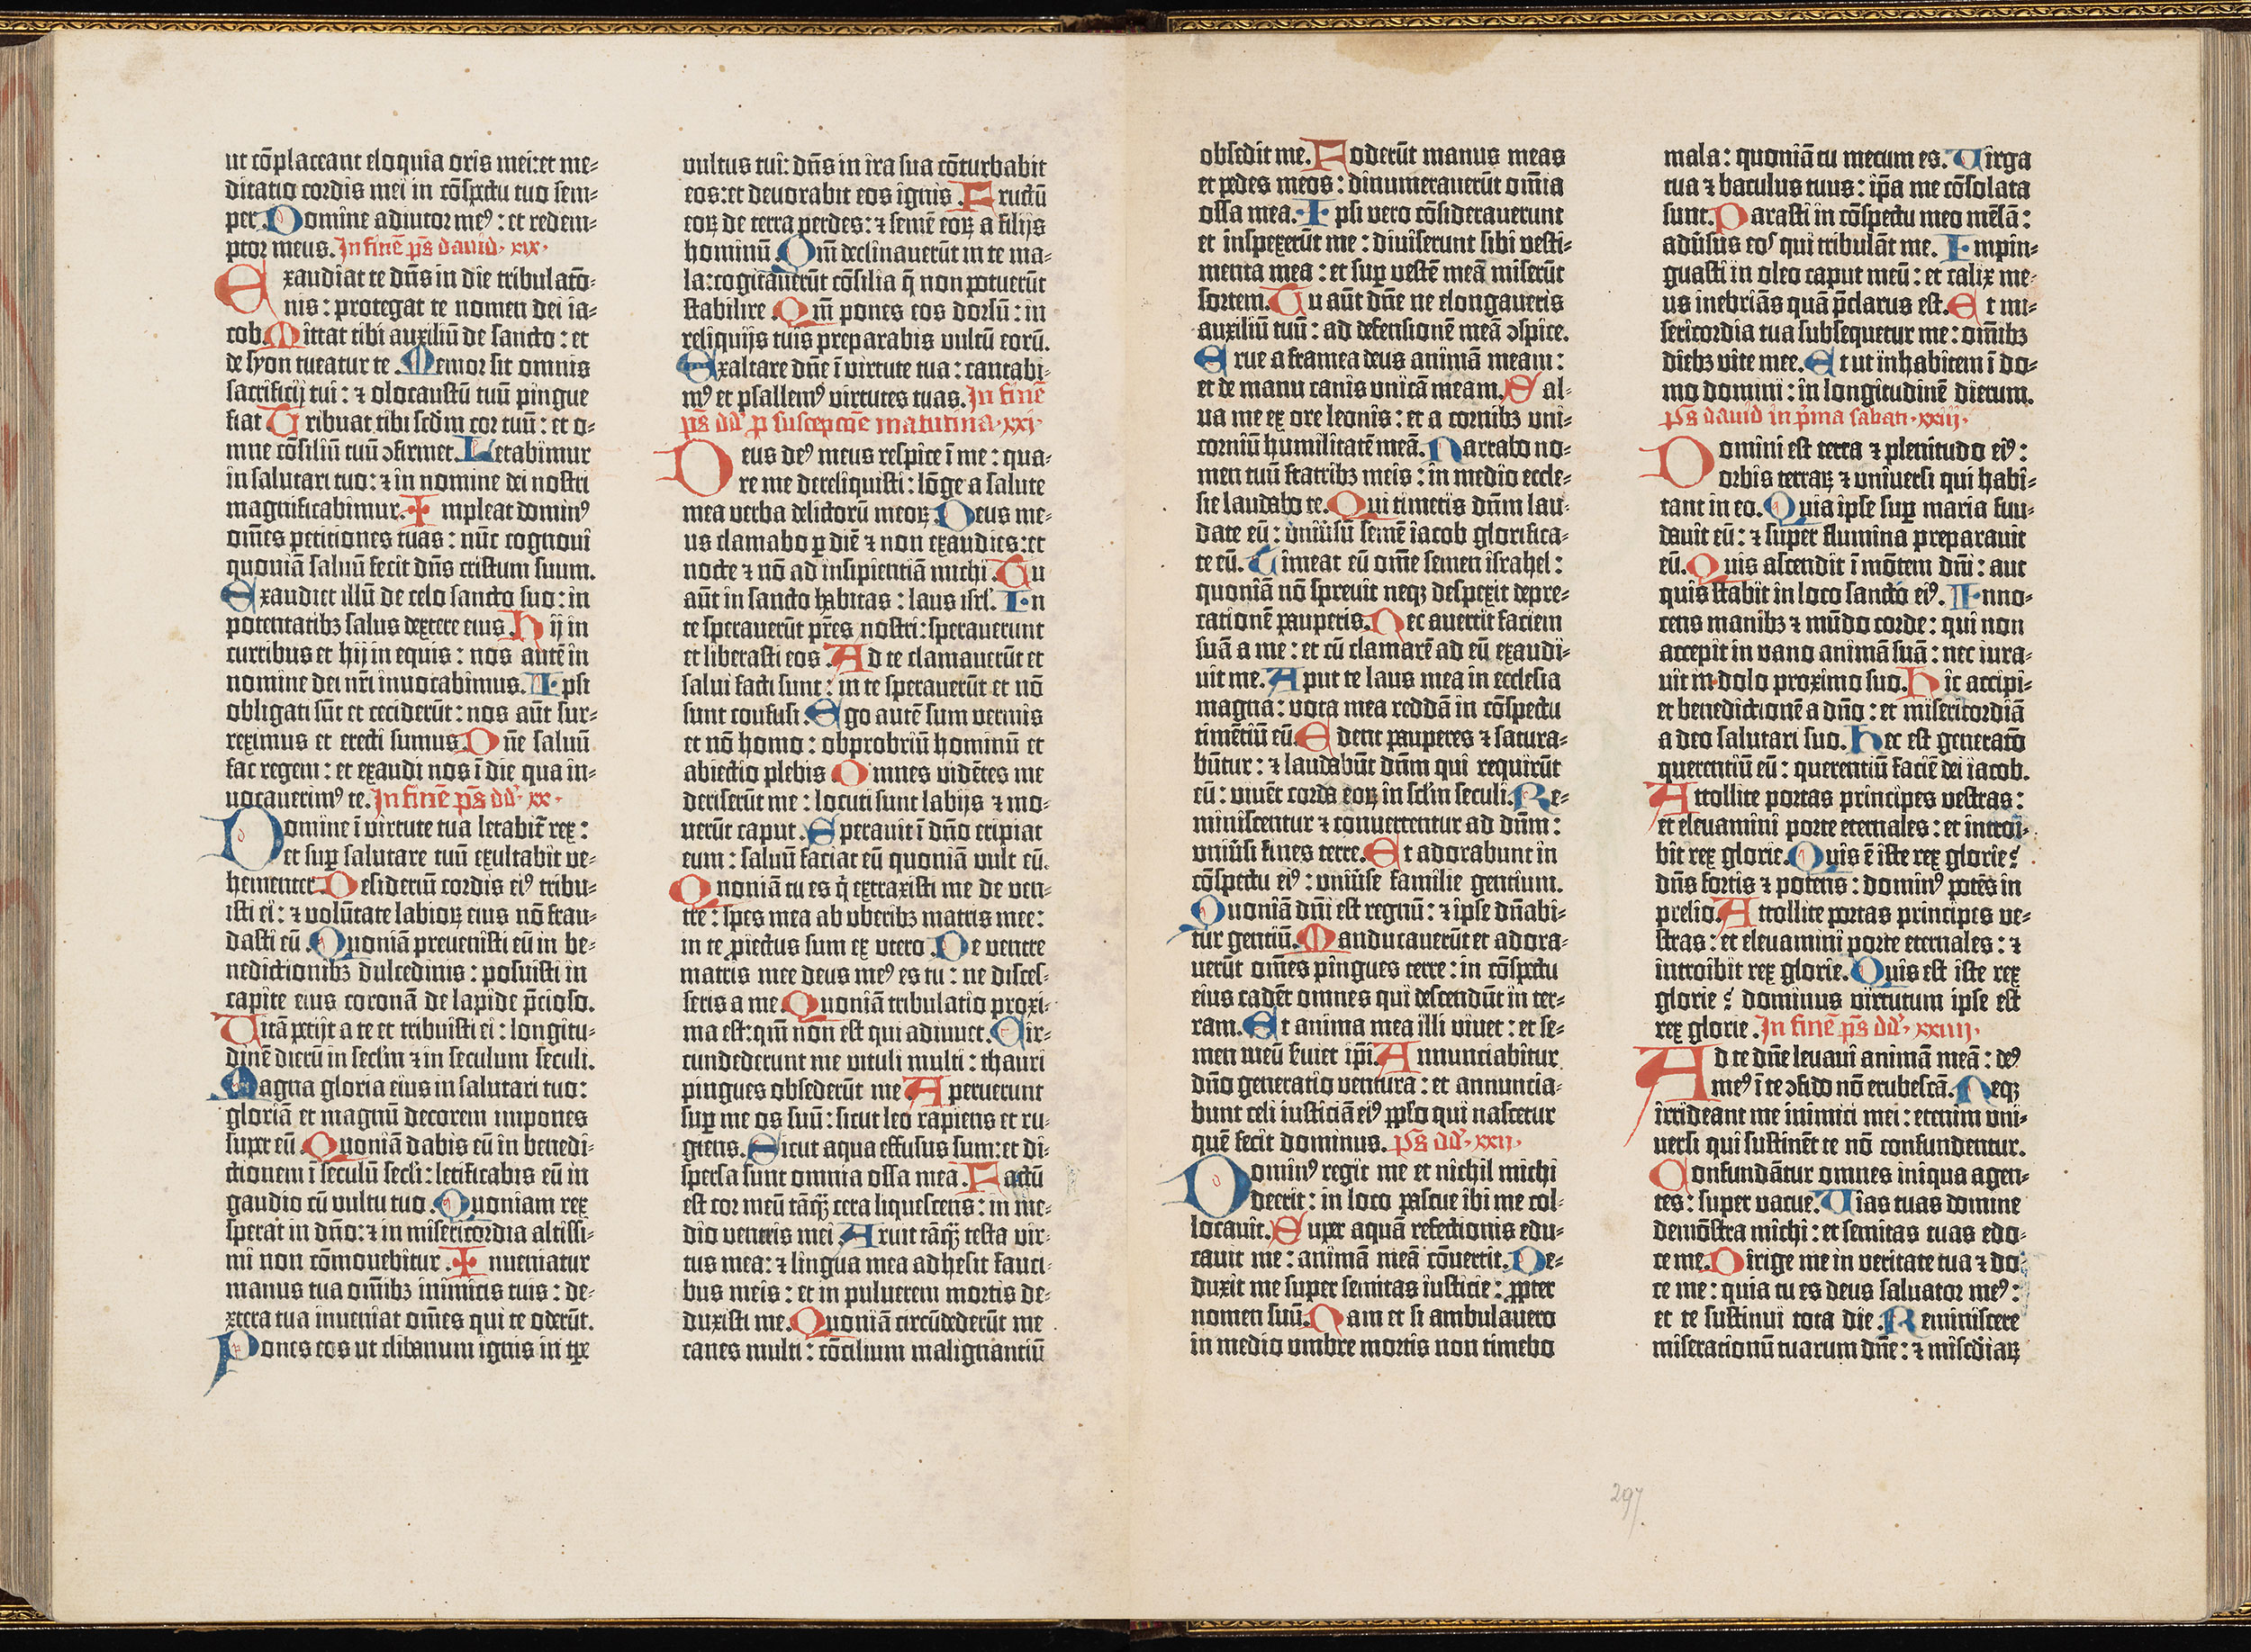 ut cōplaceant eloquia oris mei: et me⸗
ditatio cordis mei in cōspectu tuo sem⸗
per. Domine adiutor meꝰ: et redem⸗
ptor meus. In finē ps̄ dauid· xix·
Exaudiat te dn̄s in die tribulatō⸗
nis: protegat te nomen dei ia⸗
cob. Mittat tibi auxiliū de sancto: et
de syon tueatur te. Memor sit omnis
sacrificij tui: ⁊ olocaustū tuū pingue
fiat. Tribuat tibi scd̄m cor tuū: et o⸗
mne cōsiliū tuū ↄfirmet. Letabimur
in salutari tuo: ⁊ in nomine dei nostri
magnificabimur. Impleat dominꝰ
om̄es petitiones tuas: nūc cognoui
quoniā saluū fecit dn̄s cristum suum.
Exaudiet illū de celo sancto suo: in
potentatibꝫ salus dextere eius. Hij in
curribus et hij in equis: nos autē in
nomine dei nr̄i inuocabimus. Ipsi
obligati sūt et ceciderūt: nos aūt sur⸗
reximus et erecti sumus. Dn̄e saluū
fac regem: et exaudi nos ī die qua in⸗
uocauerimꝰ te. In finē ps̄ dd̄· xx·
Domine ī virtute tua letabit᷑ rex:
et sup̄ salutare tuū exultabit ve⸗
hementer. Desideriū cordis eiꝰ tribu⸗
isti ei: ⁊ volūtate labioꝝ eius nō frau⸗
dasti eū. Quoniā preuenisti eū in be⸗
nedictionibꝫ dulcedinis: posuisti in
capite eius coronā de lapide p̄cioso.
Vitā petijt a te et tribuisti ei: longitu⸗
dinē dierū in secl̄m ⁊ in seculum seculi.
Magna gloria eius in salutari tuo:
gloriā et magnū decorem impones
super eū. Quoniā dabis eū in benedi⸗
ctionem ī seculū secl̄i: letificabis eū in
gaudio cū vultu tuo. Quoniam rex
sperat in dn̄o: ⁊ in misericordia altissi⸗
mi non cōmouebitur. Inueniatur
manus tua om̄ibꝫ inimicis tuis: de⸗
xtera tua inueniat om̄es qui te oderūt.
Pones eos ut clibanum ignis in tp̄e
vultus tui: dn̄s in ira sua cōturbabit
eos: et deuorabit eos ignis. Fructū
eoꝝ de terra perdes: ⁊ semē eoꝝ a filijs
hominū. Qm̄ declinauerūt in te ma⸗
la: cogitauerūt cōsilia q̄ non potuerūt
stabilire. Qm̄ pones eos dorsū: in
reliquijs tuis preparabis vultū eorū.
Exaltare dn̄e ī virtute tua: cantabi⸗
mꝰ et psallemꝰ virtutes tuas. In finē
ps̄ dd̄ p̄ suscepcōe matutina· xxi·
Deus deꝰ meus respice ī me: qua⸗
re me dereliquisti: lōge a salute
mea verba delictorū meoꝝ. Deus me⸗
us clamabo p̱ diē ⁊ non exaudies: et
nocte ⁊ nō ad insipientiā michi. Tu
aūt in sancto habitas: laus isrl̄. In
te sperauerūt pr̄es nostri: sperauerunt
et liberasti eos. Ad te clamauerūt et
salui facti sunt: in te sperauerūt et nō
sunt confusi. Ego autē sum vermis
et nō homo: obprobriū hominū et
abiectio plebis. Omnes vidētes me
deriserūt me: locuti sunt labijs ⁊ mo⸗
uerūt caput. Sperauit ī dn̄o eripiat
eum: saluū faciat eū quoniā vult eū.
Quoniā tu es q̄ extraxisti me de ven⸗
tre: spes mea ab vberibꝫ matris mee:
in te ꝓiectus sum ex vtero. De ventre
matris mee deus meꝰ es tu: ne disces⸗
seris a me. Quoniā tribulatio proxi⸗
ma est: qm̄ non est qui adiuuet. Cir⸗
cundederunt me vituli multi: thauri
pingues obsederūt me. Aperuerunt
sup̄ me os suū: sicut leo rapiens et ru⸗
giens. Sicut aqua effusus sum: et di⸗
spersa sunt omnia ossa mea. Factū
est cor meū tāqꝫ cera liquescens: in me⸗
dio ventris mei. Aruit tāqꝫ testa vir⸗
tus mea: ⁊ lingua mea adhesit fauci⸗
bus meis: et in puluerem mortis de⸗
duxisti me. Quoniā circūdederūt me
canes multi: cōcilium malignantiū
obsedit me. Foderūt manus meas
et pedes meos: dinumerauerūt om̄ia
ossa mea. Ipsi vero cōsiderauerunt
et inspexerūt me: diuiserunt sibi vesti⸗
menta mea: et sup̄ vestē meā miserūt
sortem. Tu aūt dn̄e ne elongaueris
auxiliū tuū: ad defensionē meā ↄspice.
Erue a framea deus animā meam:
et de manu canis vnicā meam. Sal⸗
ua me ex ore leonis: et a cornibꝫ uni⸗
corniū humilitatē meā. Narrabo no⸗
men tuū fratribꝫ meis: in medio eccle⸗
sie laudabo te. Qui timetis dn̄m lau⸗
date eū: vniūsū semē iacob glorifica⸗
te eū. Timeat eū om̄e semen israhel:
quoniā nō spreuit neqꝫ despexit depre⸗
cationē pauperis. Nec auertit faciem
suā a me: et cū clamarē ad eū exaudi⸗
uit me. Aput te laus mea in ecclesia
magna: vota mea reddā in cōspectu
timētiū eū. Edent pauperes ⁊ satura⸗
būtur: ⁊ laudabūt dn̄m qui requirūt
eū: viuēt corda eoꝝ in scl̄m seculi. Re⸗
miniscentur ⁊ conuertentur ad dn̄m:
vniūsi fines terre. Et adorabunt in
cōspectu eiꝰ: vniūse familie gentium.
Quoniā dn̄i est regnū: ⁊ ipse dn̄abi⸗
tur gentiū. Manducauerūt et adora⸗
uerūt om̄es pingues terre: in cōspectu
eius cadēt omnes qui descendūt in ter⸗
ram. Et anima mea illi viuet: et se⸗
men meū s̄uiet ip̄i. Annunciabitur
dn̄o generatio ventura: et annuncia⸗
bunt celi iusticiā eiꝰ pp̄lo qui nascetur
quē fecit dominus. ps̄ dd̄· xxii·
Dominꝰ regit me et nichil michi
deerit: in loco pascue ibi me col⸗
locauit. Super aquā refectionis edu⸗
cauit me: animā meā cōuertit. De⸗
duxit me super semitas iusticie: ꝓpter
nomen suū. Nam et si ambulauero
in medio vmbre mortis non timebo
mala: quoniā tu mecum es. Virga
tua ⁊ baculus tuus: ip̄a me cōsolata
sunt. Parasti in cōspectu meo mēsā:
adūsus eos qui tribulāt me. Impin⸗
guasti in oleo caput meū: et calix me⸗
us inebriās quā p̄clarus est. Et mi⸗
sericordia tua subsequetur me: om̄ibꝫ
diebꝫ vite mee. Et ut inhabitem ī do⸗
mo domini: in longitudinē dierum.
ps̄ dauid in p̄ma sabati· xxiij·
Domini est terra ⁊ plenitudo eiꝰ:
orbis terraꝝ ⁊ vniuersi qui habi⸗
tant in eo. Quia ipse sup̄ maria fun⸗
dauit eū: ⁊ super flumina preparauit
eū. Quis ascendit ī mōtem dn̄i: aut
quis stabit in loco sancto eiꝰ. Inno⸗
cens manibꝫ ⁊ mūdo corde: qui non
accepit in vano animā suā: nec iura⸗
uit in dolo proximo suo. Hic accipi⸗
et benedictionē a dn̄o: et misericordiā
a deo salutari suo. Hec est generatō
querentiū eū: querentiū faciē dei iacob.
Attollite portas principes vestras:
et eleuamini porte eternales: et introi⸗
bit rex glorie. Quis ē iste rex glorie?
dn̄s fortis ⁊ potens: dominꝰ potēs in
prelio. Attollite portas principes ve⸗
stras: et eleuamini porte eternales: ⁊
introibit rex glorie. Quis est iste rex
glorie? dominus virtutum ipse est
rex glorie. In finē ps̄ dd̄· xxiiii·
Ad te dn̄e leuaui animā meā: deꝰ
meꝰ ī te ↄfido nō erubescā. Neqꝫ
irrideant me inimici mei: etenim vni⸗
uersi qui sustinēt te nō confundentur.
Confundātur omnes iniqua agen⸗
tes: super vacue. Vias tuas domine
demōstra michi: et semitas tuas edo⸗
ce me. Dirige me in veritate tua ⁊ do⸗
ce me: quia tu es deus saluator meꝰ:
et te sustinui tota die. Reminiscere
miserationū tuarum dn̄e: ⁊ misc̄diaꝝ
297